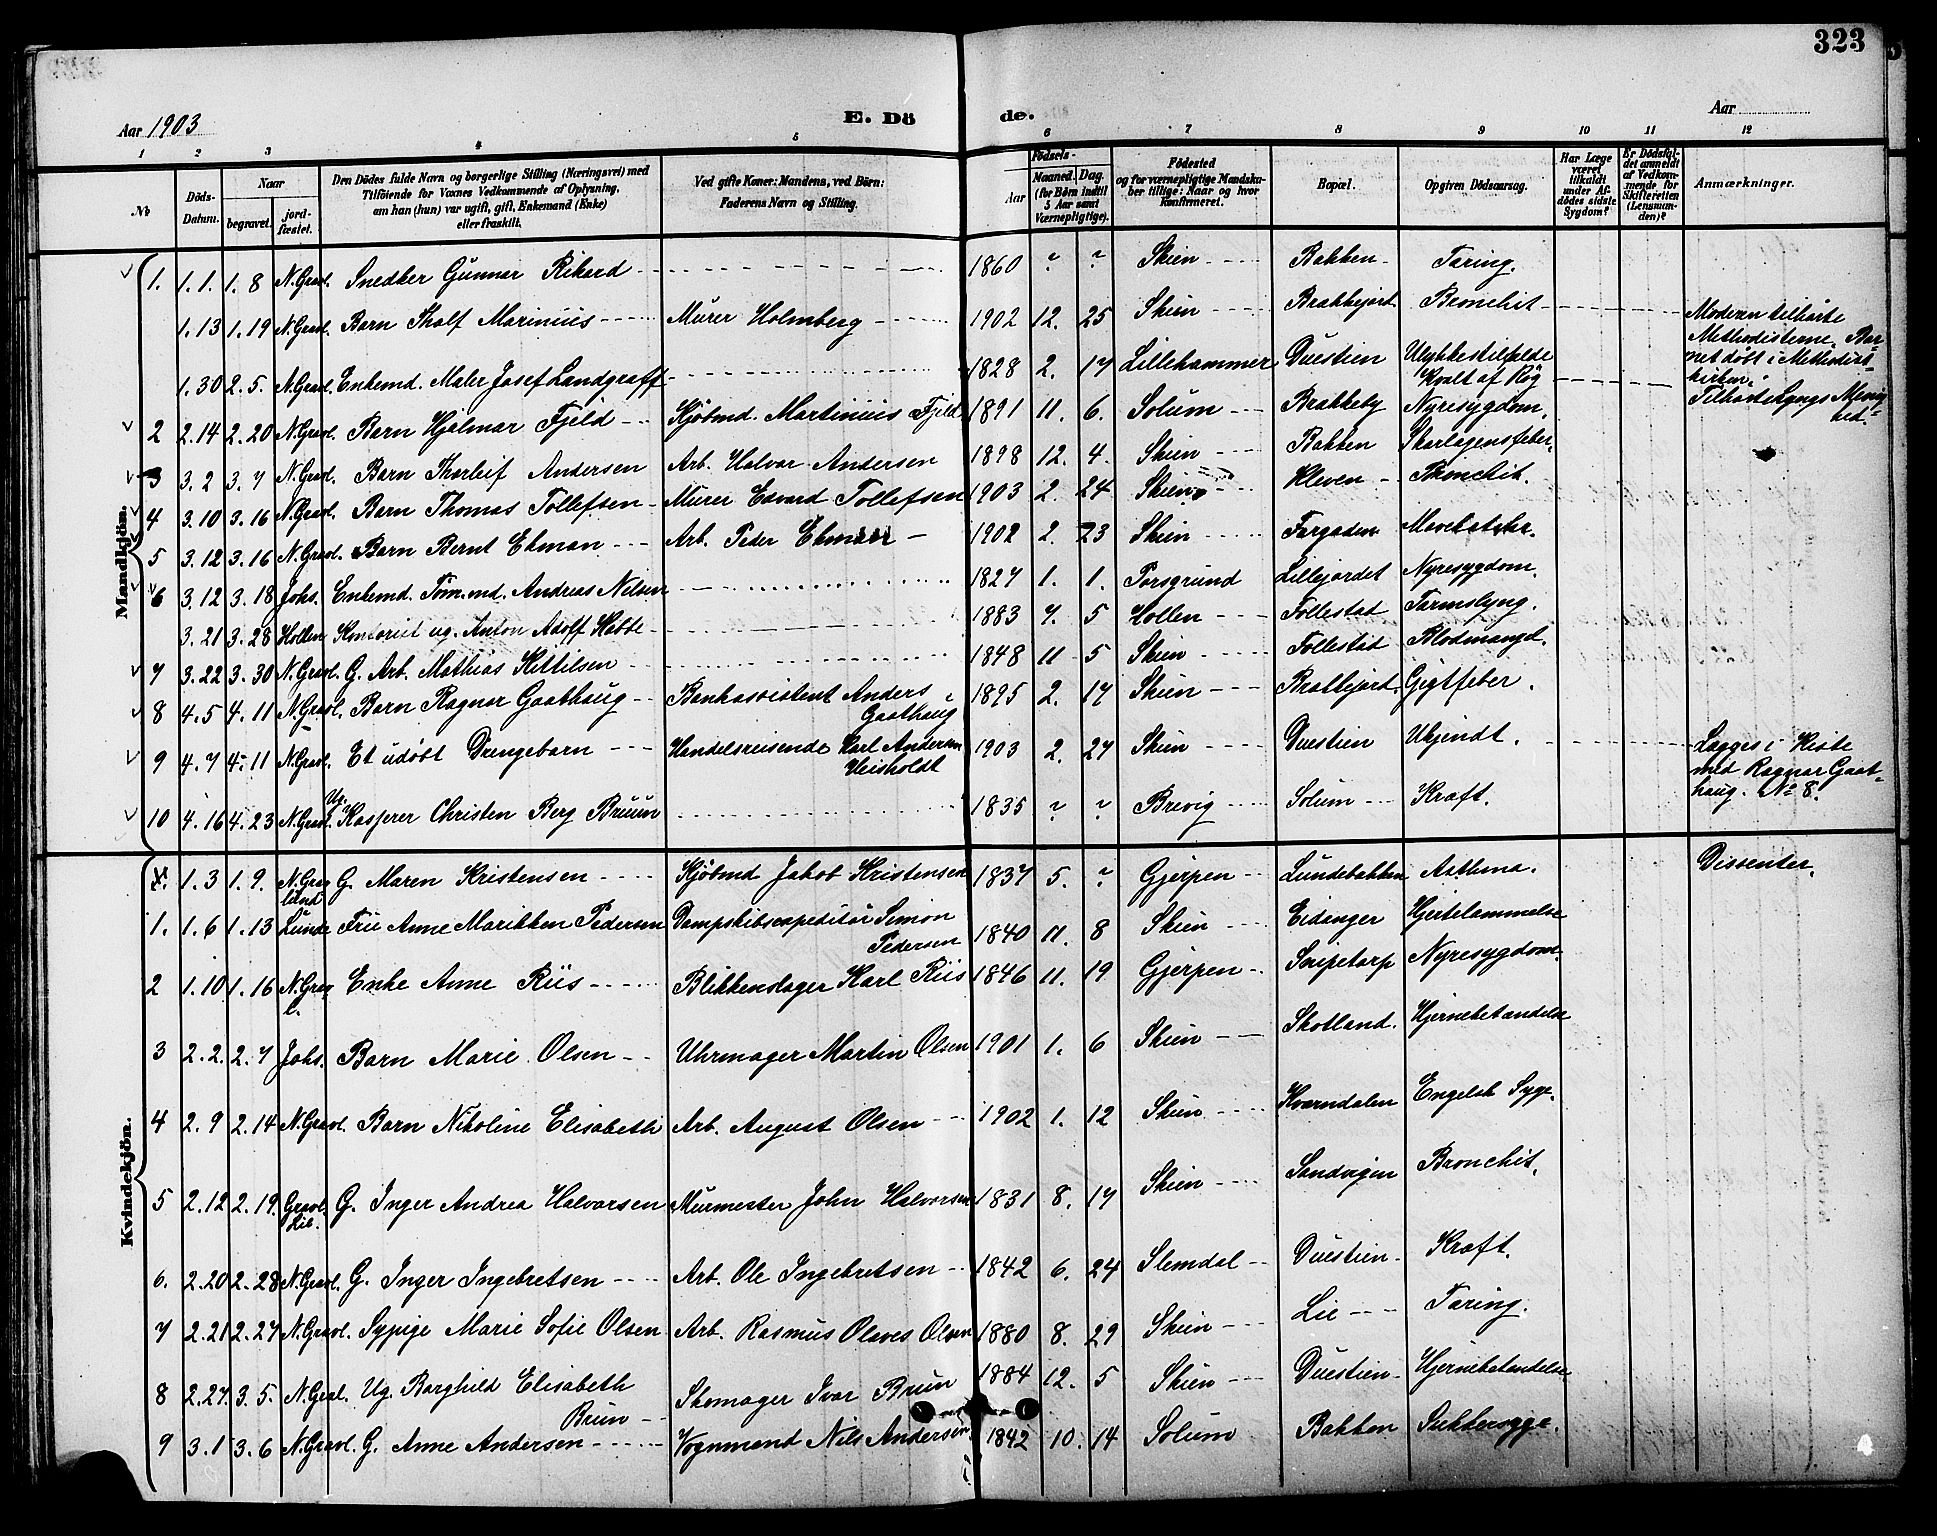 323
Aar 1903 E. Dö de. Aar
1 2 3 4 5 6 7 8 9 10 11 12
№ Döds-Datum. Naar begravet. jord-fæstet. Den Dödes fulde Navn og borgerlige Stilling (Næringsvei) med Tilföiende for Voxnes Vedkommende af Oplysning, om han (hun) var ugift, gift, Enkemand (Enke) eller fraskilt. Ved gifte Koner: Mandens, ved Börn: Faderens Navn og Stilling. Födsels- Aar Maaned. Dag. (for Börn indtil 5 Aar samt Værnepligtige). Födested og for værnepligtige Mandskaber tillige: Naar og hvor konfirmeret. Bopæl. Opgiven Dödsaarsag. Har Læge været tilkaldt under Afdödes sidste Sygdom? Er Dödsfaldet anmeldt af Vedkommende for Skifteretten (Lensmanden)? Anmærkninger.
Mandkjön.
1. 1.1. 1.8 N.Gravl. Snedker Gunnar Rikard 1860 ? ? Skien Bakken Tæring.
1.13 1.19 N.Gravl. Barn Tholf Marinius Murer Holmberg 1902 12. 25 Skien Brekkejord Bronchit Moderen tilhörte Methodisterne. Barnet döbt i Methodistkirken.
1.30 2.5. N.Gravl. Enkemd. Maler Josef Landgraff 1828 2. 17 Lillehammer Duestien Ulykkestilfælde Kvalt af Røg Tilhörte Lyngs Menighed.
2 2.14 2.20 N.Gravl. Barn Hjalmar Fjeld Kjöbmd. Martinius Fjeld 1891 11. 6. Solum Brekkeby Nyresygdom.
3 3.2 3.7 N.Gravl. Barn Thorleif Andersen Arb. Halvor Andersen 1898 12. 4. Skien Bakken Skarlagensfeber.
4 3.10 3.16 N.Gravl. Barn Thomas Tollefsen Murer Edvard Tollefsen 1903 2. 24 Skien Kleven Bronchit.
5 3.12 3.16 N.Gravl. Barn Bernt Ekman Arb. Peder Ekman 1902 2. 23 Skien Fargaden Mavekatarh.
6 3.12 3.18 Johs. Enkemd. Töm.md. Andreas Nilsen 1827 1. 1. Porsgrund Lillejordet Nyresygdom.
3.21 3.28 Hollen Kontorist ug. Anton Adolf Hobbe 1883 7. 5 Hollen Follestad Tarmslyng.
7 3.22 3.30 N.Gravl. G. Arb. Mathias Kittilsen 1848 11 5 Skien Follestad Blodmangd.
8 4.5 4.11 N.Gravl. Barn Ragnar Gaathaug Bankassistent Anders Gaathaug 1895 2. 17 Skien Brekkejord. Gigtfeber.
9 4.7 4.11 N.Gravl. Et udöbt Drengebarn Handelsreisende Karl Andersen Heisholdt 1903 2. 27 Skien Duestien Ukjendt. Lægges i Kiste med Ragnar Gaathaug. № 8.
10 4.16 4.23 N.Gravl. Ug. Kasserer Christen Berg Bruun 1835 ? ? Brevig Solum Kræft.
Kvindekjön.
1.3 1.9. N.Gravlund G. Maren Kristensen Kjöbmd Jakob Kristensen 1837 5. ? Gjerpen Lundebakken Asthma. Dissenter.
1. 1.6 1.13 Lunde Frü Anne Marikken Pedersen Dampskibsexpeditör Simon Pedersen 1840 11. 8 Skien Eidanger Hjertelammelse
2 1.10 1.16 N.Gravl. Enke Anne Riis Blikkenslager Karl Riis 1846 11. 19 Gjerpen Snipetorp Nyresygdom.
3 2.2. 2.7 Johs. Barn Marie Olsen Uhrmager Martin Olsen 1901 1. 6 Skien Skotland. Hjernebetændelse
4 2.9 2.14 N.Gravl. Barn Nikoline Elisabeth Arb. August Olsen 1902 1. 12 Skien Kværndalen Engelsk Syge.
5 2.12 2.19. Gravl. Lie. G. Inger Andrea Halvorsen Murmester John Halvorsen 1831 8. 17 Skien Sandvigen Bronchit.
6. 2.20 2.28 N.Gravl. G. Inger Ingebretsen Arb. Ole Ingebretsen 1842 6. 24 Slemdal Duestien Kræft.
7 2.21 2.27 N.Gravl. Sypige Marie Sofie Olsen Arb. Rasmus Olaves Olsen 1880 8. 29 Skien Lie Tæring.
8 2.27. 3.5. N.Gravl. Ug. Borghild Elisabeth Brun Skomager Ivar Brun 1884 12. 5 Skien Duestien Hjernebetændelse
9 3.1 3.6 N.Gravl. G. Anne Andersen Vognmand Nils Andersen 1842 10. 14 Solum Bakken Sukkersyge.